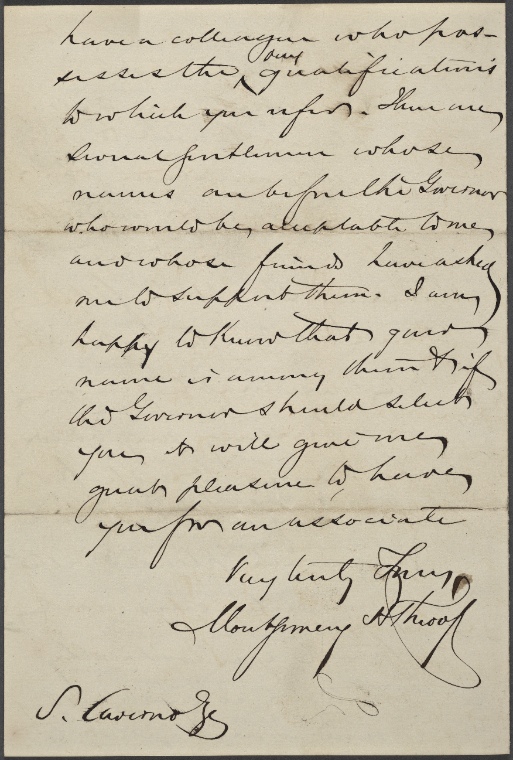 have a colleague who pos-
sesses the very qualifications
to which you refer. There are
several gentlemen whose
names are before the Governor
who would be acceptable to me
and whose friends have asked
me to support them. I am
happy to know that your
name is among them & if
the Governor should select
you it will give me
great pleasure to have
you for an associate
Very truly Yours,
Montgomery H Throop
S. Caverno Esq